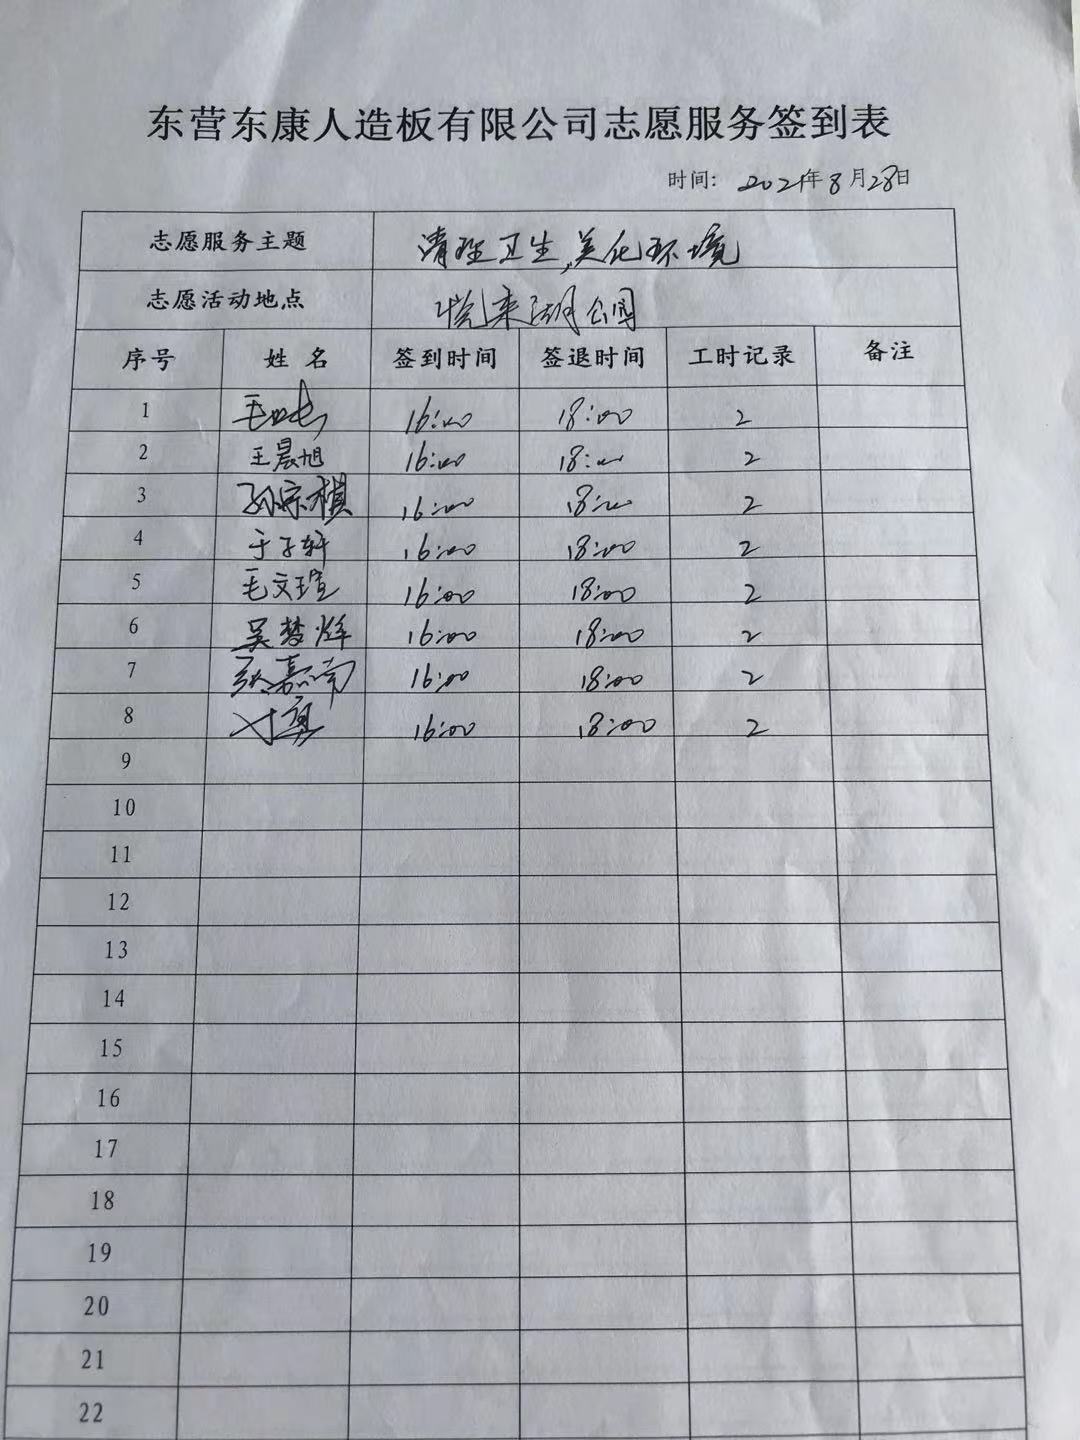 东营东康人造板有限公司志愿服务签到表
时间: 2021年8月28日
志愿服务主题 清理卫生,美化环境
志愿活动地点 悦来湖公园
序号 姓名 签到时间 签退时间 工时记录 备注
1 16:00 18:00 2
2 王晨旭 16:00 18:00 2
3 孙宗棋 16:00 18:00 2
4 于子轩 16:00 18:00 2
5 毛文瑄 16:00 18:00 2
6 吴梦烨 16:00 18:00 2
7 张嘉 16:00 18:00 2
8 16:00 18:00 2
9
10
11
12
13
14
15
16
17
18
19
20
21
22